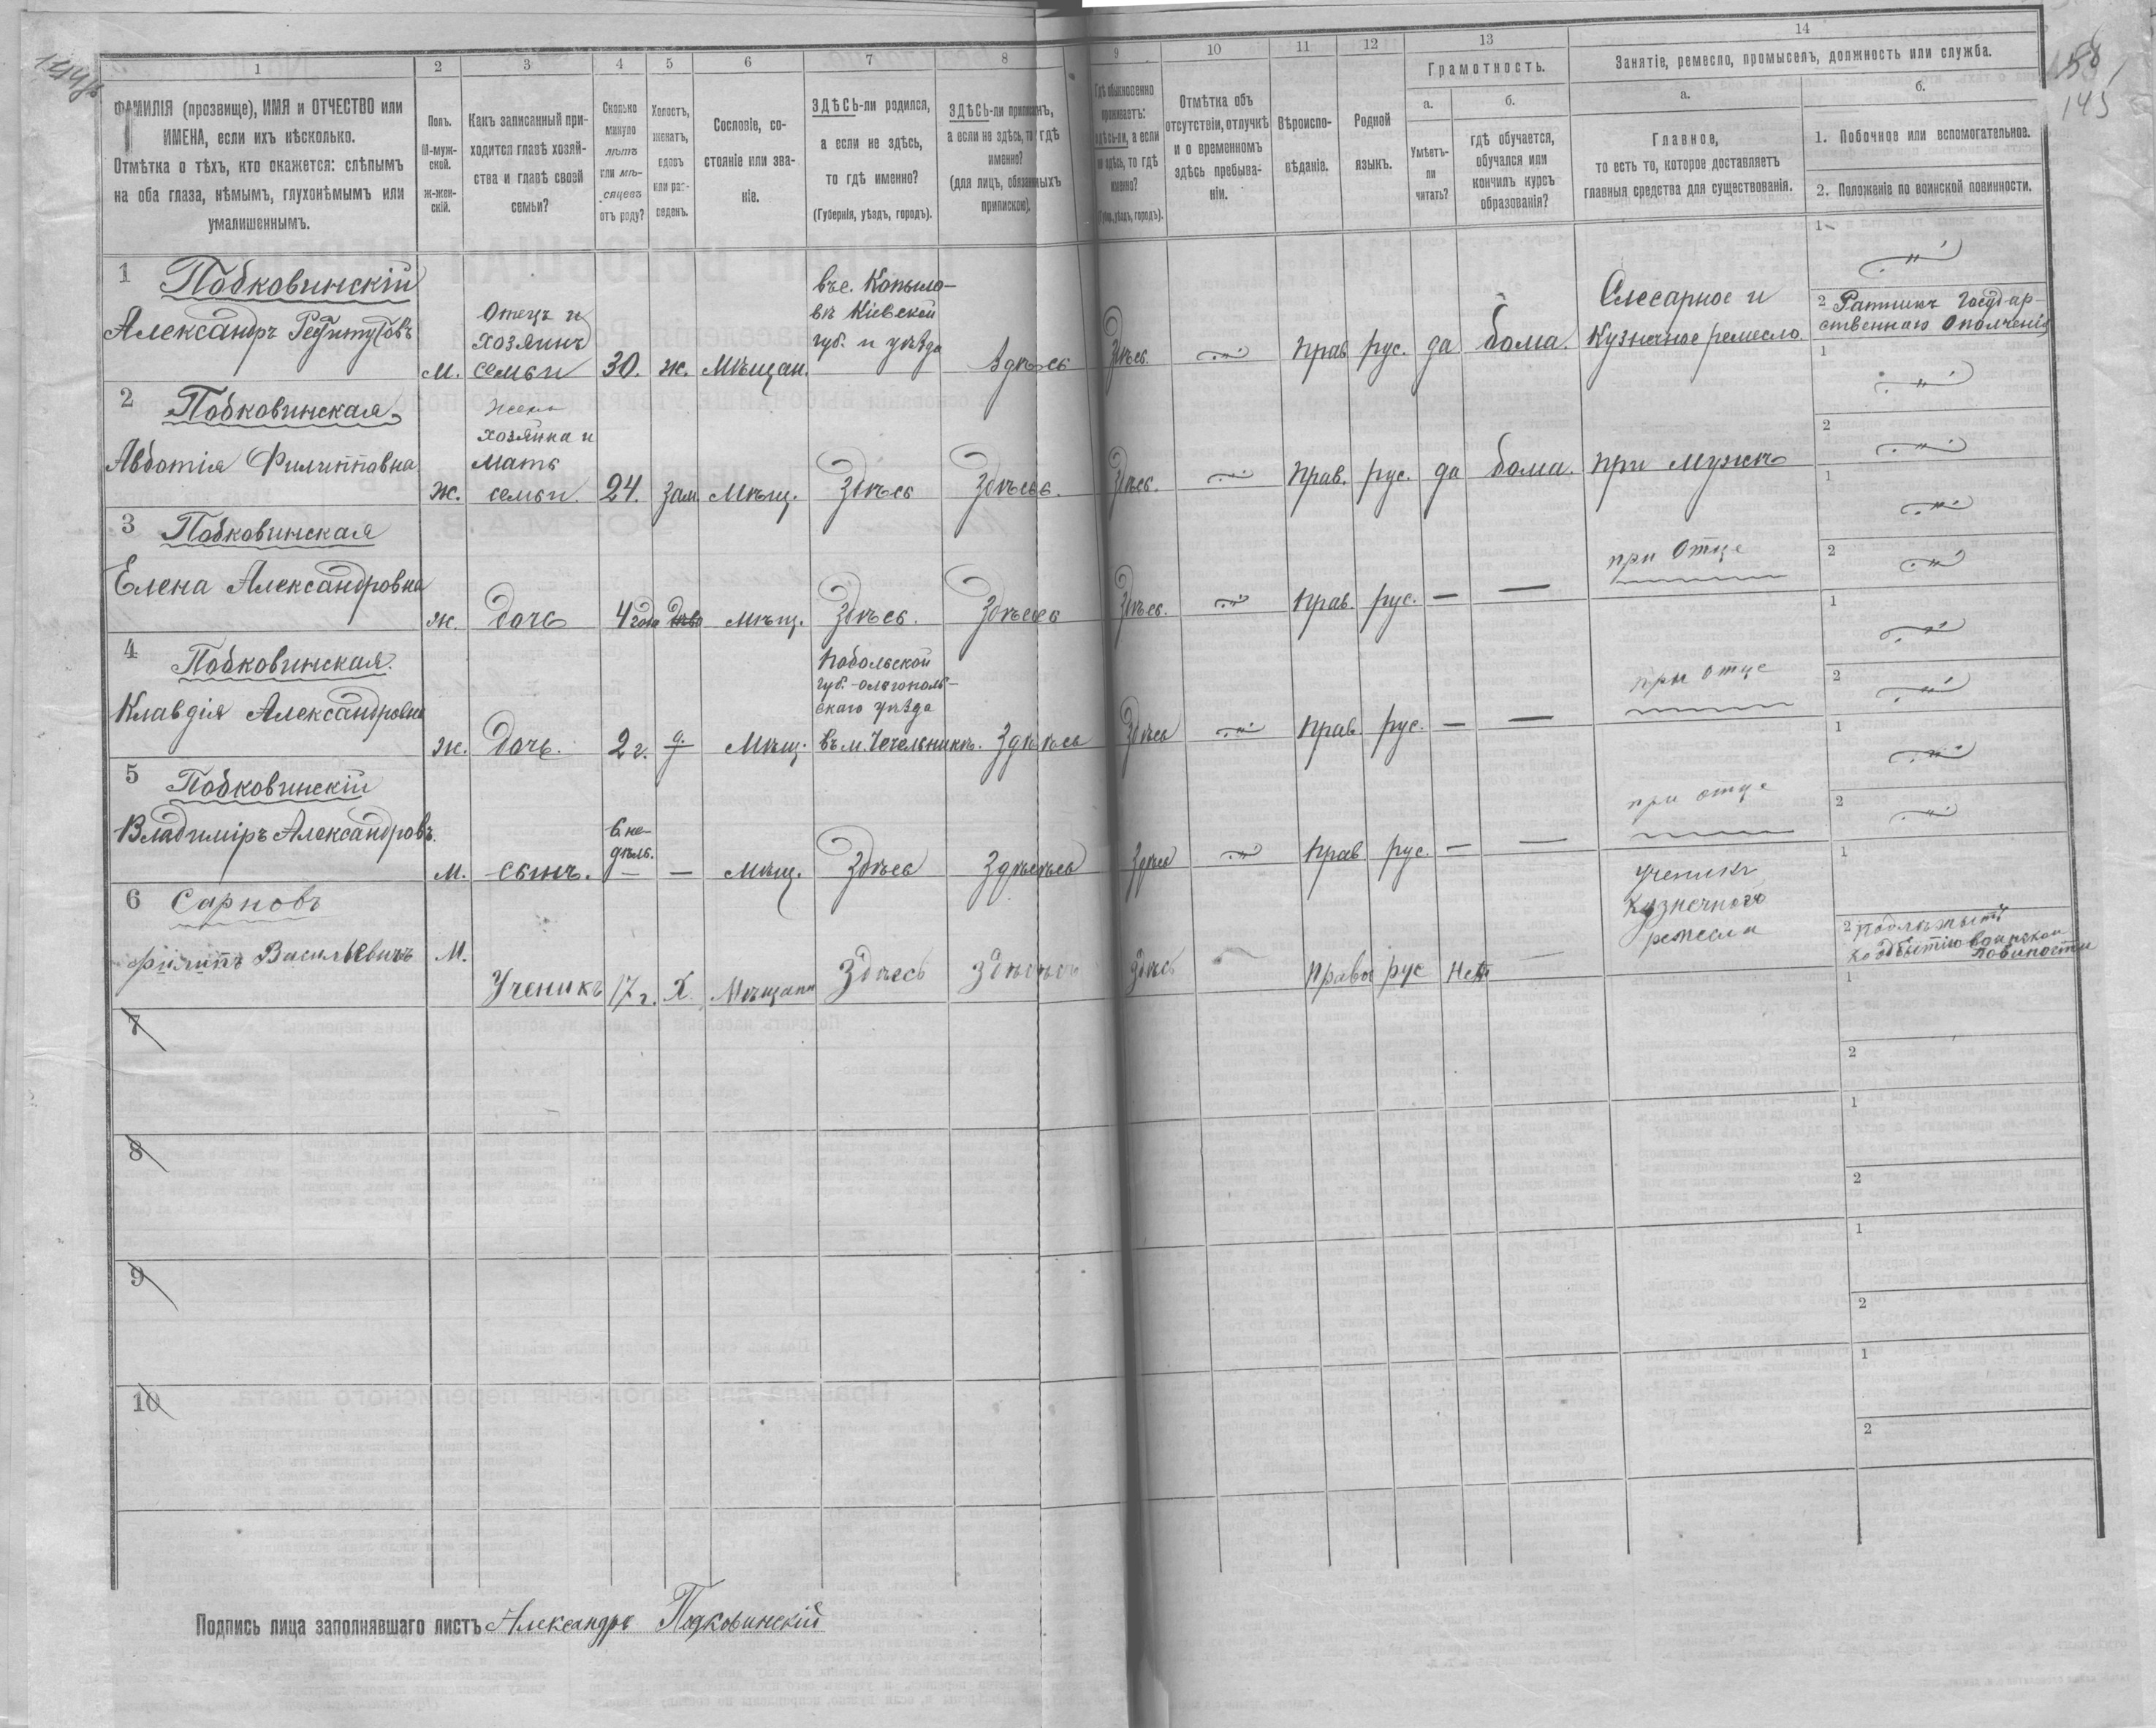 144об
158
145
1
2
3
4
5
6
7
8
9
10
11
12
13
14
ФАМИЛІЯ (прозвище), ИМЯ и ОТЧЕСТВО или
ИМЕНА, если ихъ нѣсколько.
Отмѣтка о тѣхъ, кто окажется: слѣпымъ
на оба глаза, нѣмымъ, глухонѣмымъ или
умалишеннымъ.
Полъ.
М-муж-
ской.
Ж-жен-
скій.
Какъ записанный при-
ходится главѣ хозяй-
ства и главѣ своей
семьи?
Сколько
минуло
лѣтъ
или мѣ-
сяцевъ
отъ роду?
Холостъ,
женатъ,
вдовъ
или раз-
веденъ.
Сословіе, со-
стояніе или зва-
ніе.
ЗДѢСЬ-ли родился,
а если не здѣсь,
то гдѣ именно?
(Губернія, уѣздъ, городъ).
ЗДѢСЬ-ли приписанъ,
а если не здѣсь, то гдѣ
именно?
(для лицъ, обязанныхъ
припискою).
Гдѣ обыкновенно
проживаетъ:
здѣсь-ли, а если
не здѣсь, то гдѣ
именно?
(Губ., уѣздъ, городъ).
Отмѣтка объ
отсутствіи, отлучкѣ
и о временномъ
здѣсь пребыва-
ніи.
Вѣроиспо-
вѣданіе.
Родной
языкъ.
Грамотность.
а.
Умѣетъ-
ли
читать?
б.
гдѣ обучается,
обучался или
кончилъ курсъ
образованія?
Занятіе, ремесло, промыселъ, должность или служба.
а.
Главное,
то есть то, которое доставляетъ
главныя средства для существованія.
б.
1. Побочное или вспомогательное.
2. Положеніе по воинской повинности.
1 Подковинскій
Александръ
м.
Отецъ и
хозяинъ
семьи
30. ж. Мѣщан.
въ с. Копыло-
вѣ Кіевской
губ. и уѣзда
Здѣсь
Здѣсь.
прав рус. да дома.
Слесарное и
Кузнечное ремесло.
1
2 Ратникъ Государ-
ственнаго Ополченія
2 Подковинская
Авдотія Филипповна
Ж.
Жена
хозяина и
мать
семьи.
24. зам. Мѣщ. Здѣсь Здѣсь. Здѣсь. прав. рус. да дома. при мужѣ
1
2
3 Подковинская
Елена Александровна
Ж. дочь 4 года мѣщ. Здѣсь. Здѣсь Здѣсь. прав. рус. — —
при Отце
1
2
4 Подковинская.
Клавдія Александровна
Ж. дочь. 2 г. д. Мѣщ.
Подольской
губ. Ольгополь-
скаго уѣзда
въ м. Чечельникѣ. Здѣсь Здѣсь прав. рус. — —
при отце
1
2
5 Подковинскій
Владиміръ Александровъ.
М. сынъ.
6 не-
дѣль.
— мѣщ. Здѣсь Здѣсь Здѣсь прав рус. — —
при отце
1
2
6 Сарновъ
Филипъ Васильевичъ М.
Ученикъ 17 г. Х. Мѣщани Здѣсь Здѣсь Здѣсь Правос рус Нетъ —
ученикъ
кузнечного
ремесла
1
2 подлѣжитъ
ко отбытію воинской
повиности
7
1
2
8
1
2
9
1
2
10
1
2
Подпись лица заполнявшаго листъ Александръ Подковинскій